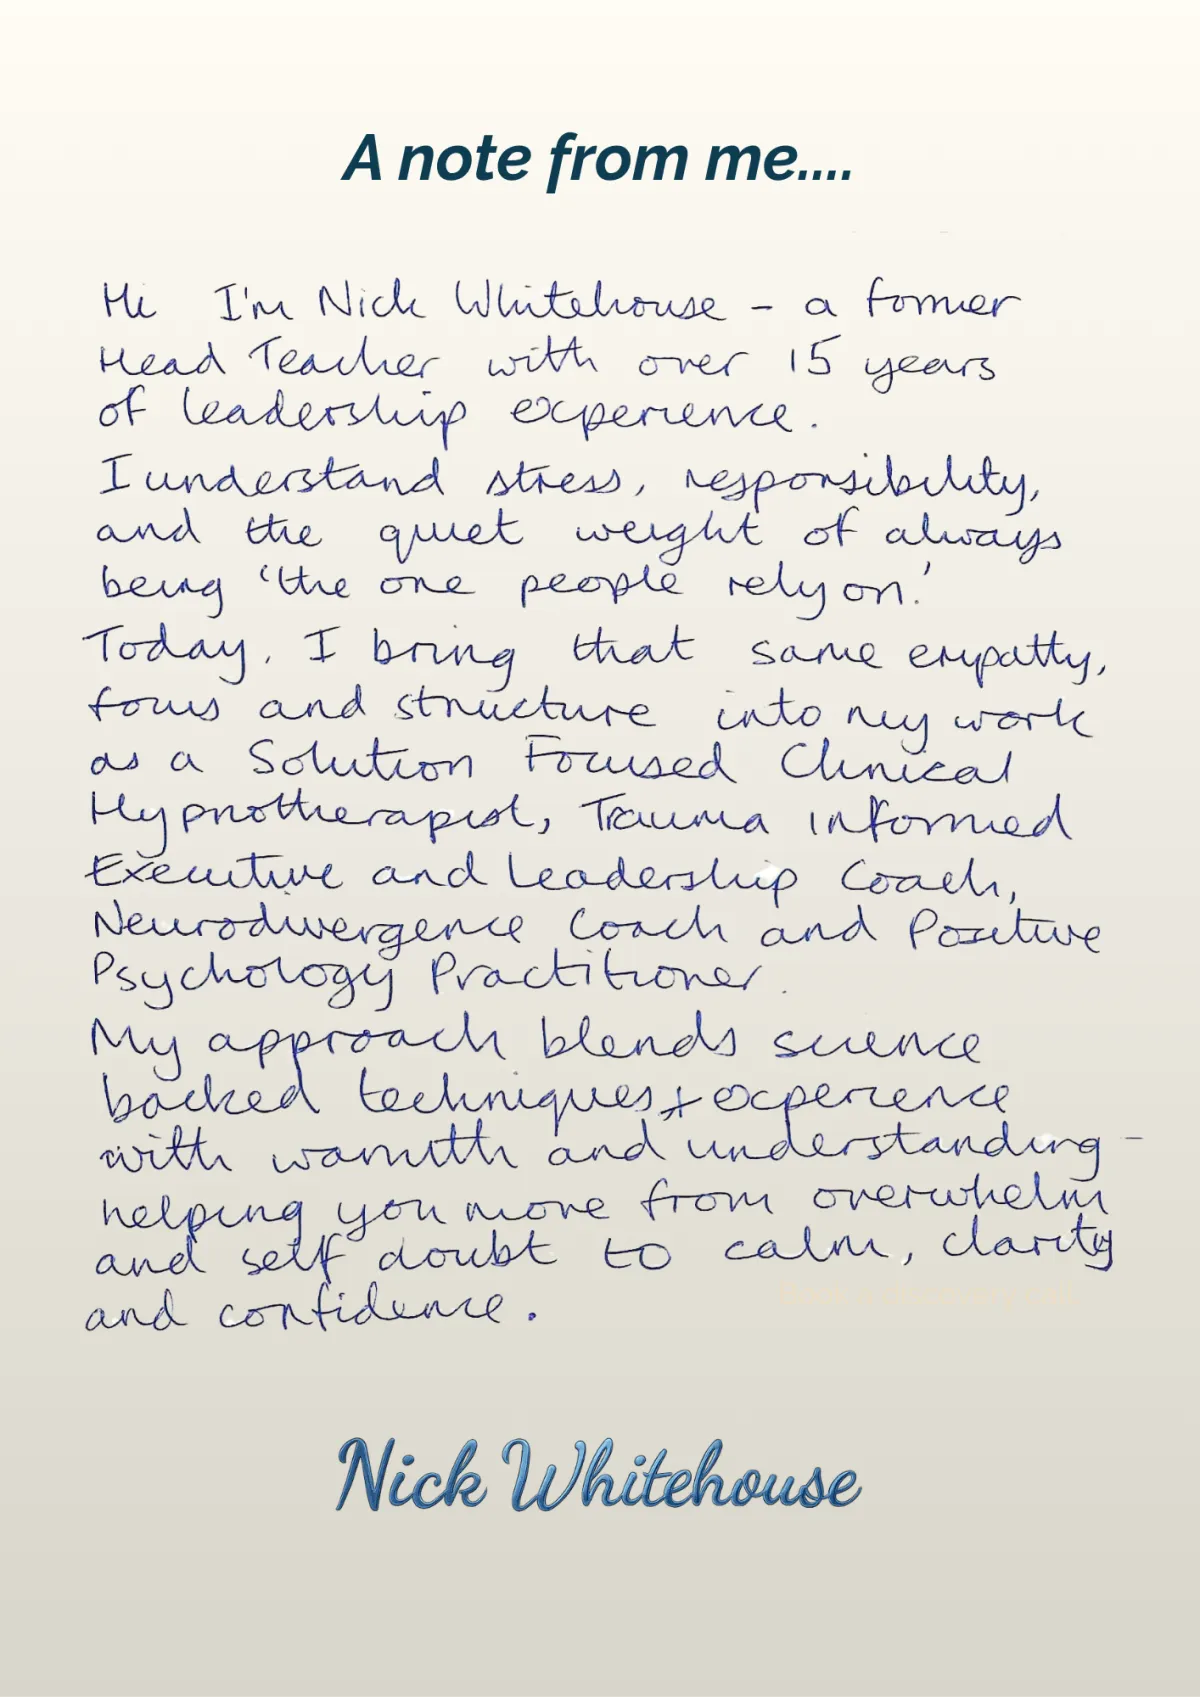 A note from me....
Hi I'm Nick Whitehouse - a former
Head Teacher with over 15 years
of leadership experience.
I understand stress, responsibility,
and the quiet weight of always
being 'the one people rely on.'
Today, I bring that same empathy,
focus and structure into my work
as a Solution Focused Clinical
Hypnotherapist, Trauma informed
Executive and Leadership Coach,
Neurodivergence Coach and Positive
Psychology Practitioner.
My approach blends science
backed techniques + experience
with warmth and understanding -
helping you move from overwhelm
and self doubt to calm, clarity
and confidence.
Nick Whitehouse